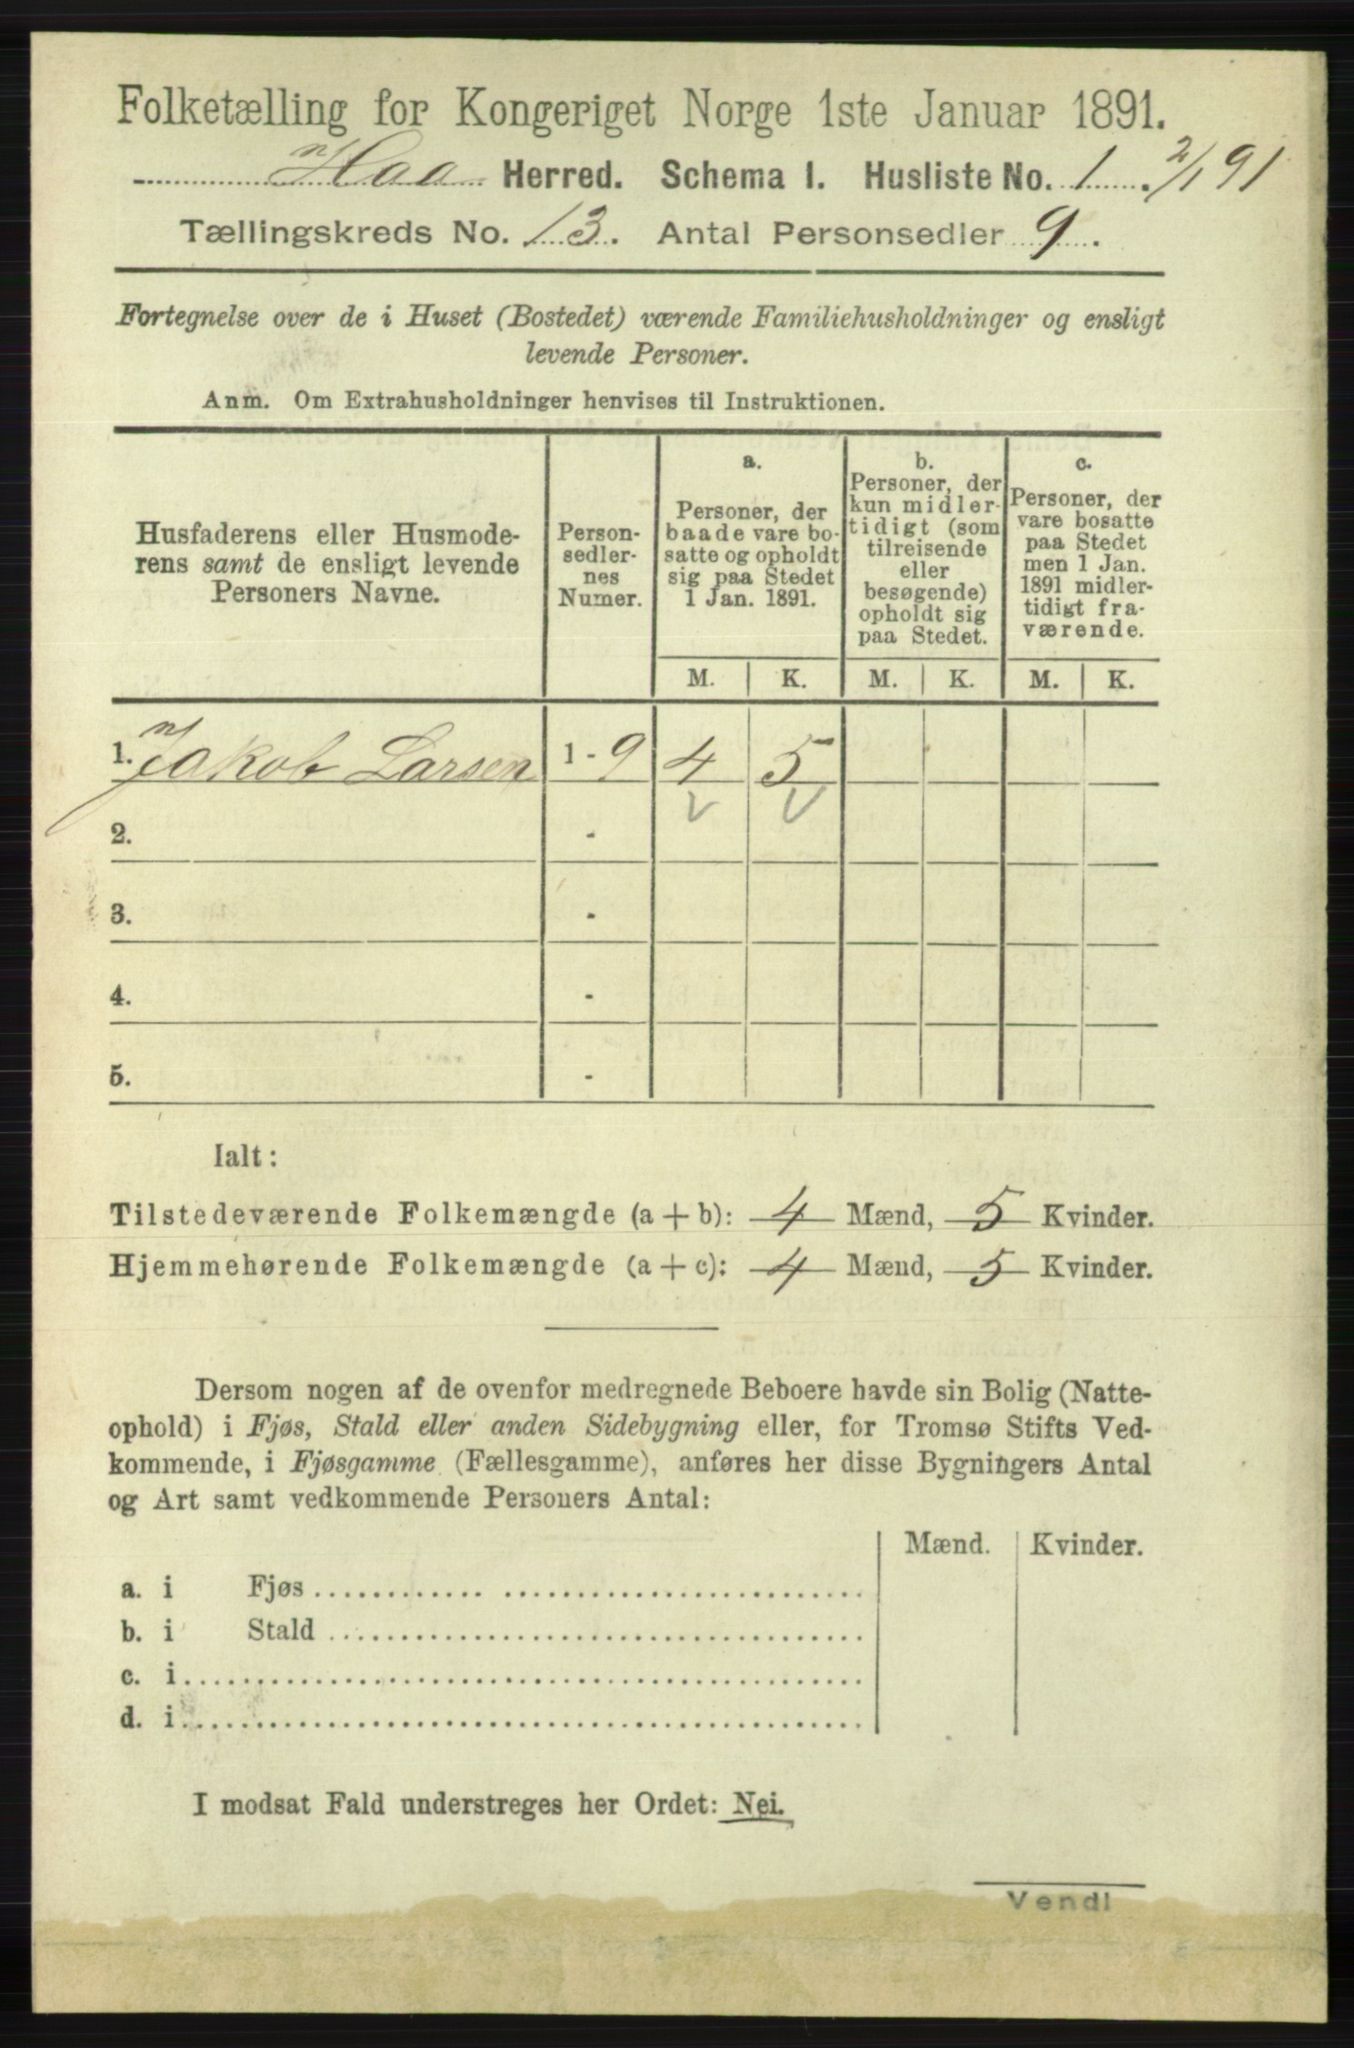 Folketælling for Kongeriget Norge 1ste Januar 1891.
Haa Herred. Schema I. Husliste No. 1. 2/1 91
Tællingskreds No. 13. Antal Personsedler 9.
Fortegnelse over de i Huset (Bostedet) værende Familiehusholdninger og ensligt
levende Personer.
Anm. Om Extrahusholdninger henvises til Instruktionen.
Husfaderens eller Husmode-
rens samt de ensligt levende
Personers Navne.
Person-
sedler-
nes
Numer.
a.
Personer, der
baade vare bo-
satte og opholdt
sig paa Stedet
1 Jan. 1891.
b.
Personer, der
kun midler-
tidigt (som
tilreisende
eller
besøgende)
opholdt sig
paa Stedet.
c.
Personer, der
vare bosatte
paa Stedet
men 1 Jan.
1891 midler-
tidigt fra-
værende.
M. K. M. K. M. K.
1. Jakob Larsen 1 - 9 4 5
2. -
3. -
4. -
5. -
Ialt:
Tilstedeværende Folkemængde (a + b): 4 Mænd, 5 Kvinder.
Hjemmehørende Folkemængde (a + c): 4 Mænd, 5 Kvinder.
Dersom nogen af de ovenfor medregnede Beboere havde sin Bolig (Natte-
ophold) i Fjøs, Stald eller anden Sidebygning eller, for Tromsø Stifts Ved-
kommende, i Fjøsgamme (Fællesgamme), anføres her disse Bygningers Antal
og Art samt vedkommende Personers Antal:
Mænd. Kvinder.
a. i Fjøs
b. i Stald
c. i
d. i
I modsat Fald understreges her Ordet: Nei.
Vend!